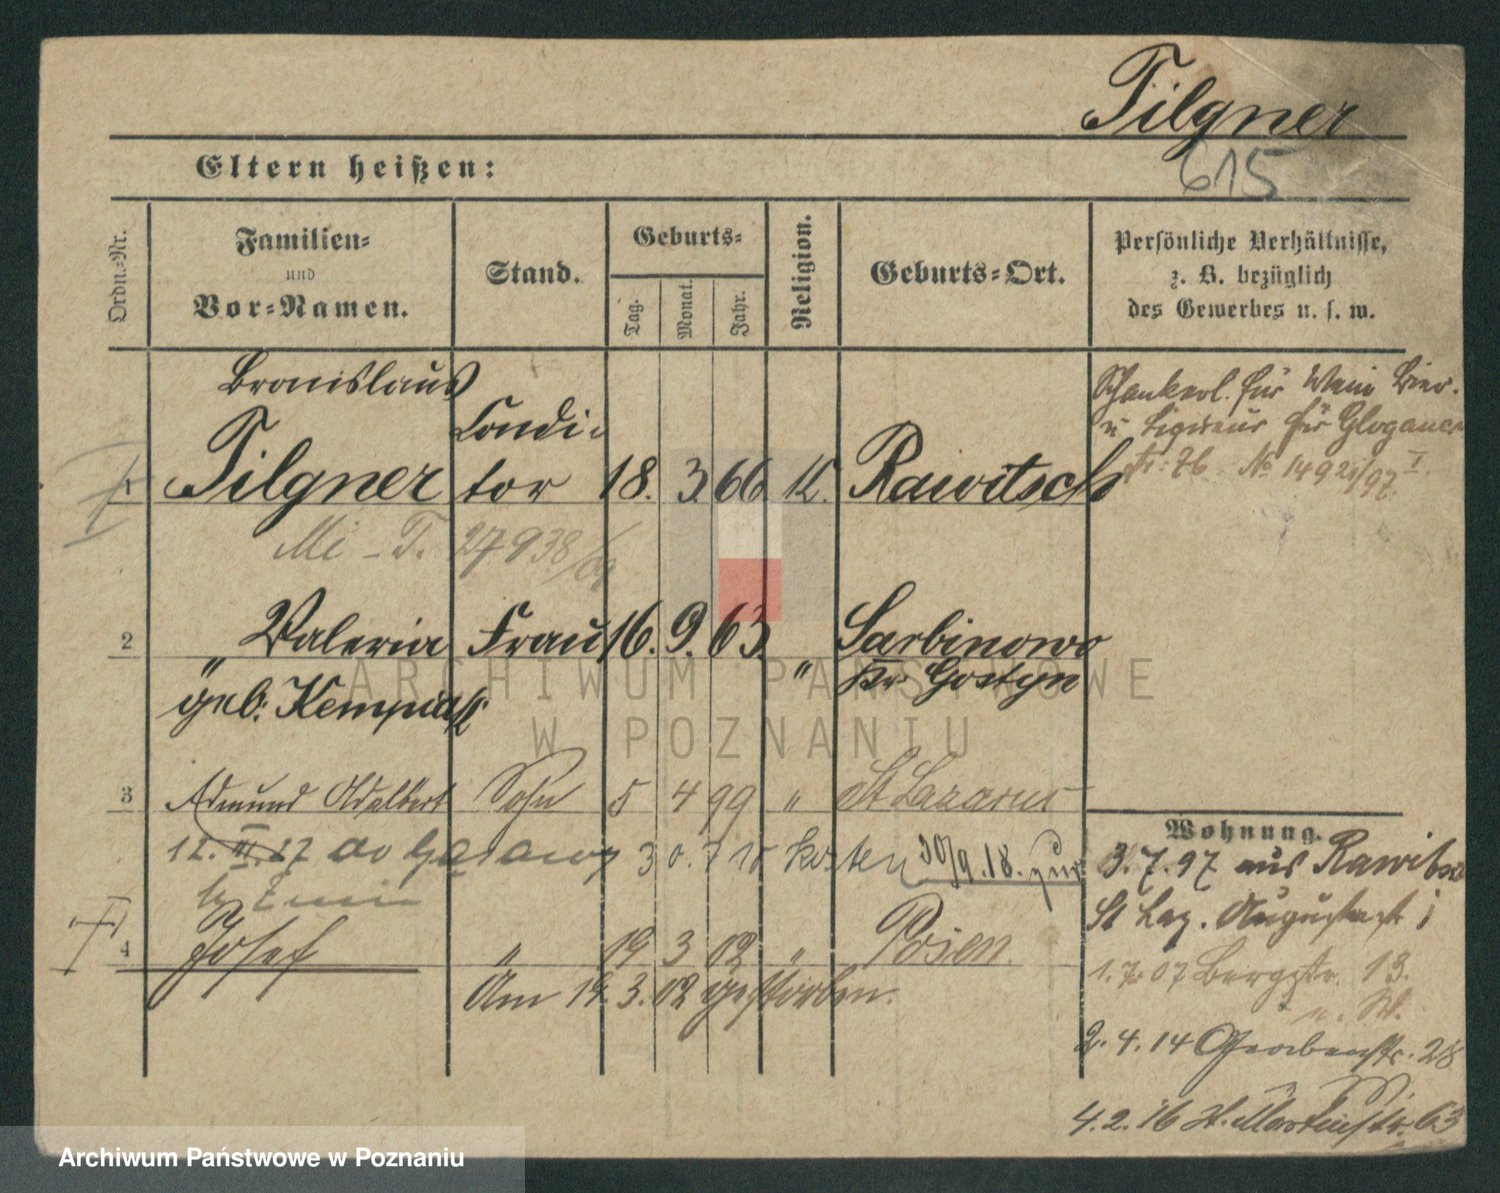 Tilgner
615
Eltern heißen:
Ordn.-Nr.
Familien-
und
Vor-Namen.
Stand.
Geburts-
Tag.
Monat.
Jahr.
Religion.
Geburts-Ort.
Persönliche Verhältnisse,
z. B. bezüglich
des Gewerbes u. s. w.
Bronislaus
Condi-
1 Tilgner tor 18. 3. 66 K. Rawitsch
Schankerl. für Wein Bier-
u Liqueur für Glogauer
str: 76. No 14921/97 I.
Mi - T. 27938/09
2 " Valeria Frau 16. 9. 63. " Sarbinowo
Kr. Gostyn
geb.
3 Edmund Adalbert Sohn 5 4 99 " St Lazarus
12. III. 17
30/9.18. zur
4 Josef " 19 3 02 " Posen.
Am 19. 3. 02 gestorben.
Wohnung.
3.7.97 aus Rawitsch
St Laz. Augustastr
1.7.07 Bergstr. 13.
2.4.14 Grabenstr. 28
4.2.16 St. Martinstr. 63
ARCHIWUM PAŃSTWOWE
W POZNANIU
Archiwum Państwowe w Poznaniu